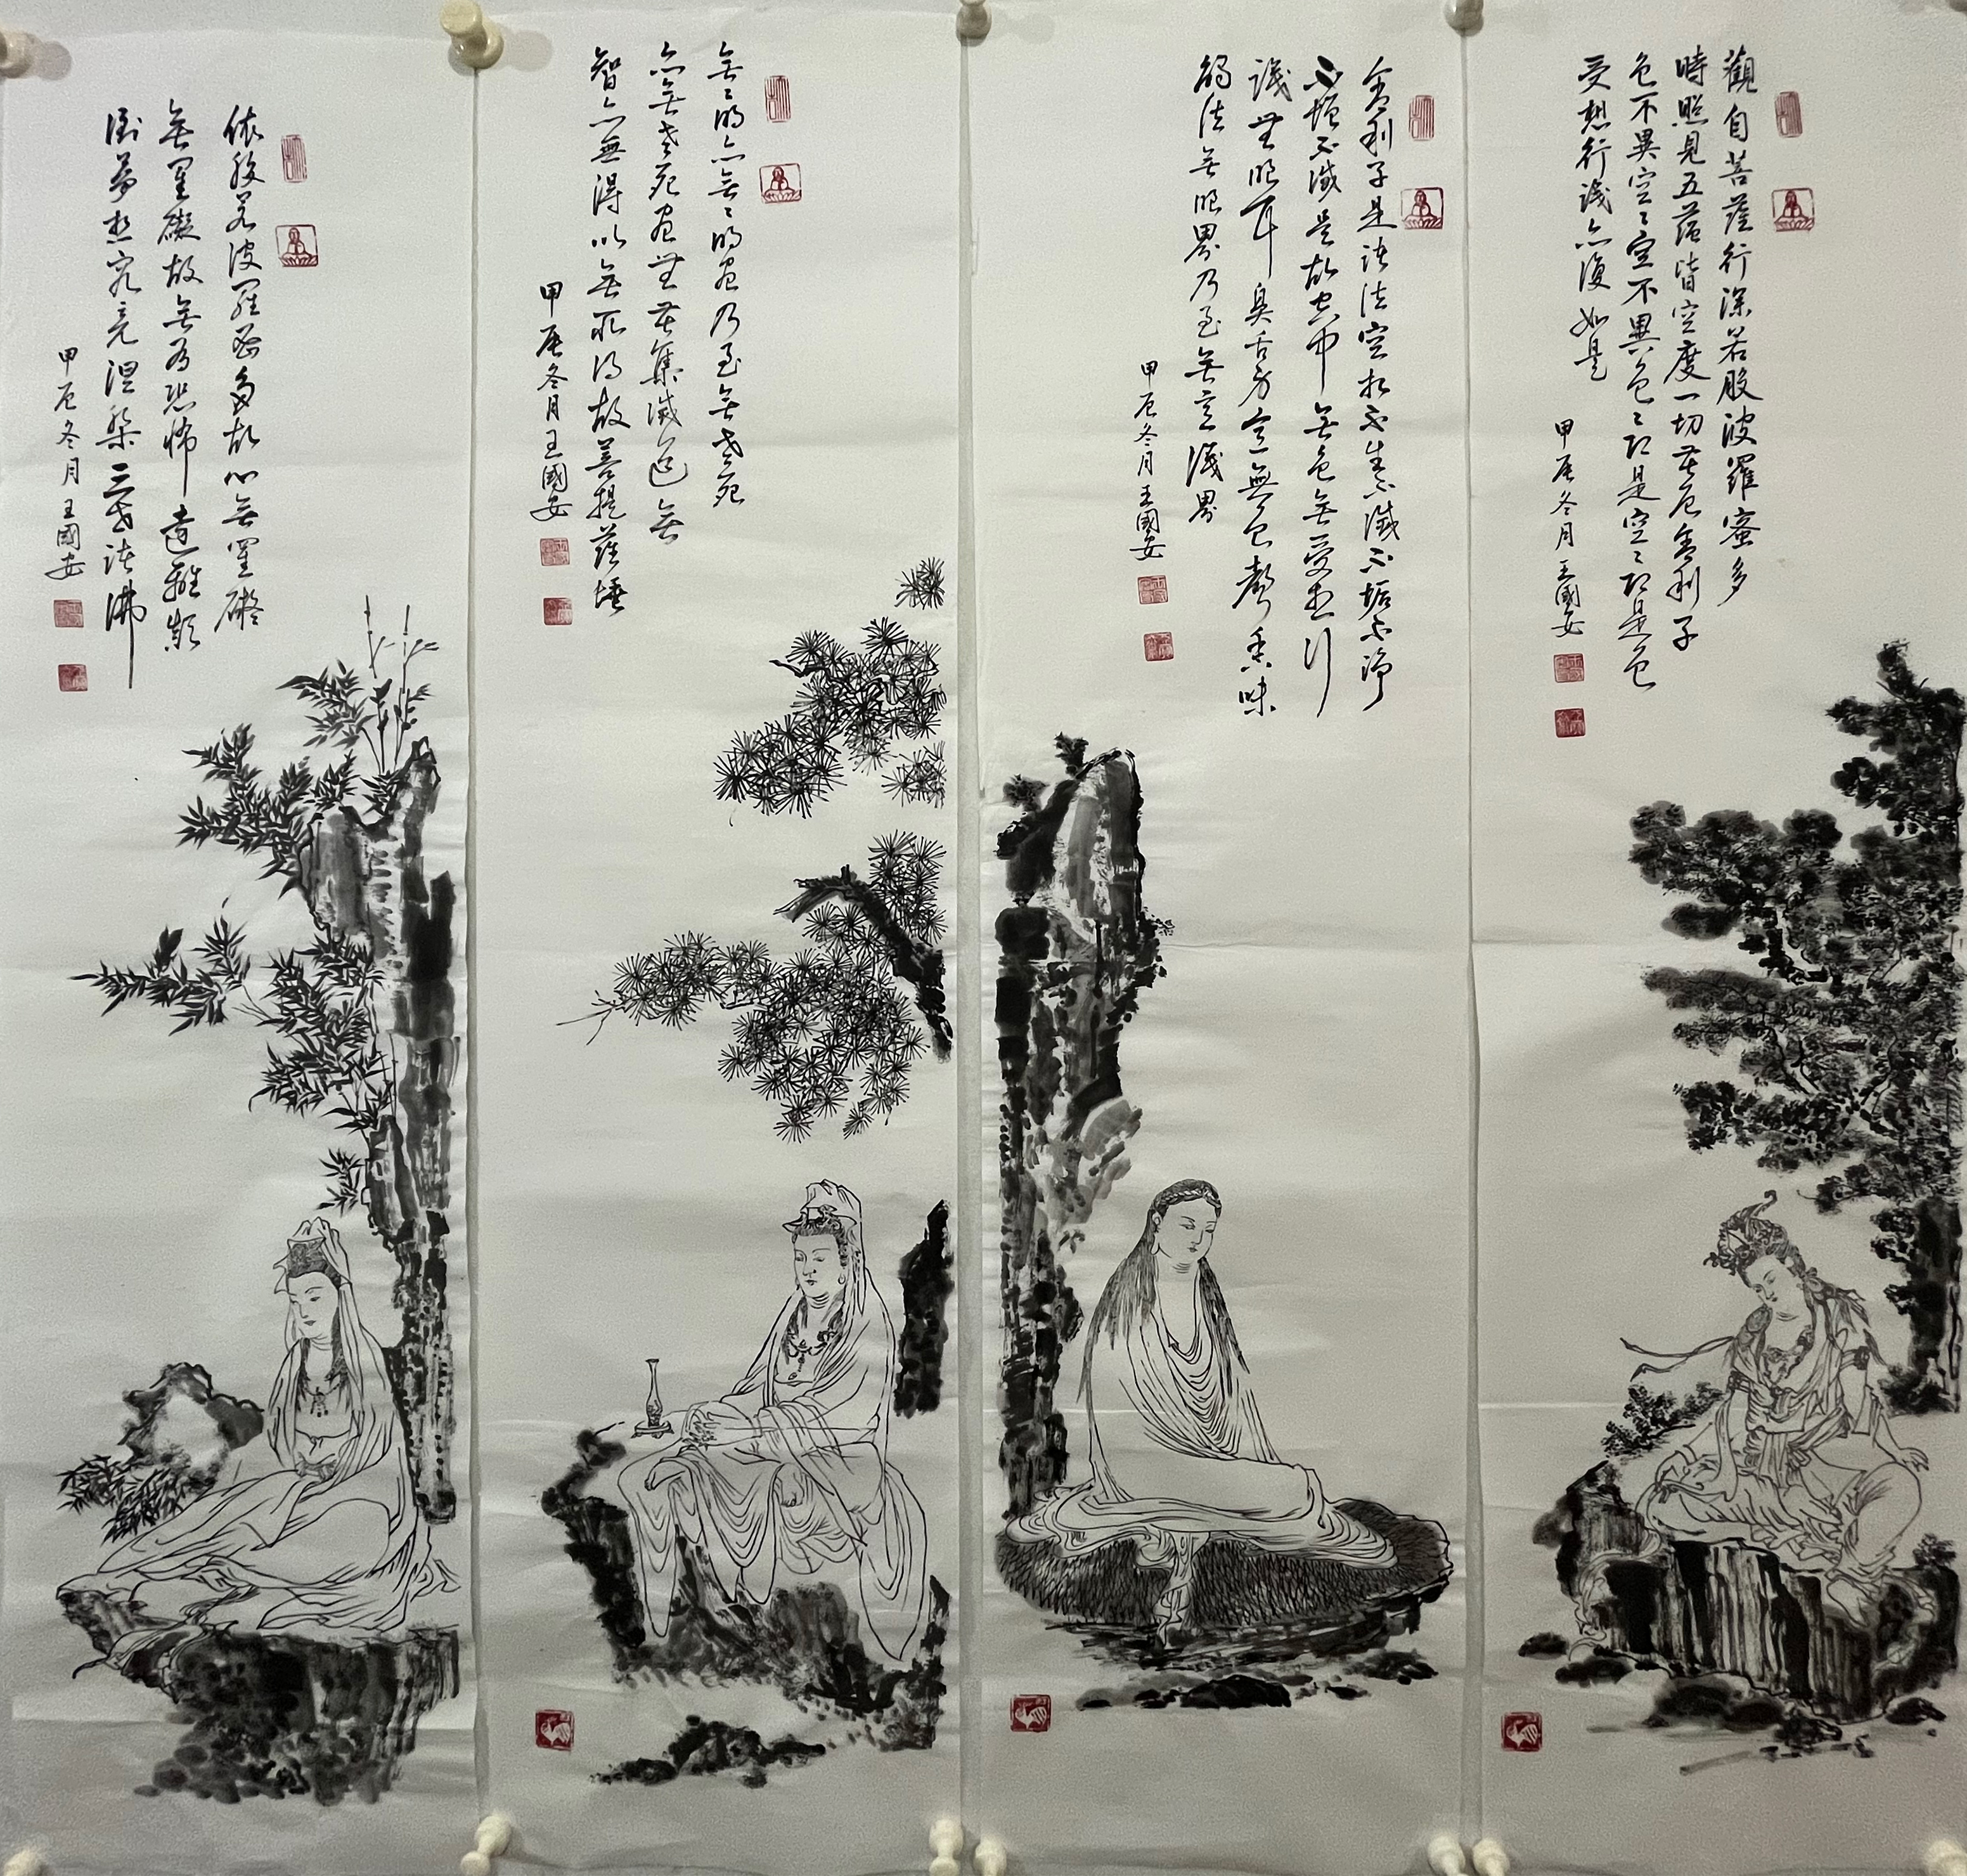 觀自菩薩行深若般波羅蜜多
時照見五蘊皆空度一切苦厄舍利子
色不異空〻空不異色〻即是空〻即是色
受想行識亦復如是
甲辰冬月王國安
舍利子是諸法空相不生不滅不垢不淨
不增不減是故空中無色無受想行
識無眼耳鼻舌身意無色聲香味
觸法無眼界乃至無意識界
甲辰冬月王國安
無〻明亦無〻明盡乃至無老死
亦無老死盡無苦集滅道無
智亦無得以無所得故菩提薩埵
甲辰冬月王國安
依般若波羅蜜多故心無罣礙
無罣礙故無有恐怖遠離顛
倒夢想究竟涅槃三世諸佛
甲辰冬月王國安